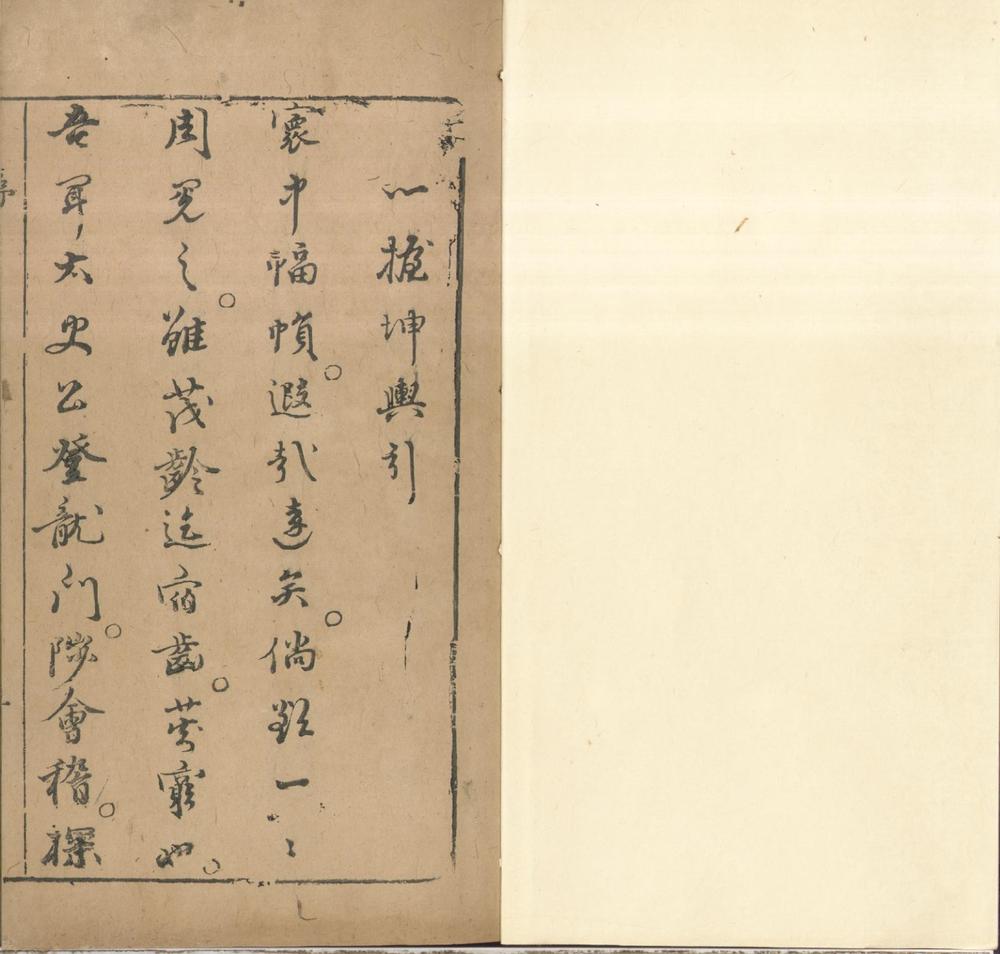 一握坤輿引
寰中幅幀。遐哉逺矣。倘欲一〻
周覔之。雖茂齡迄宿齒。莫窮也。
吾耳太史公登龍門。陟會稽。探